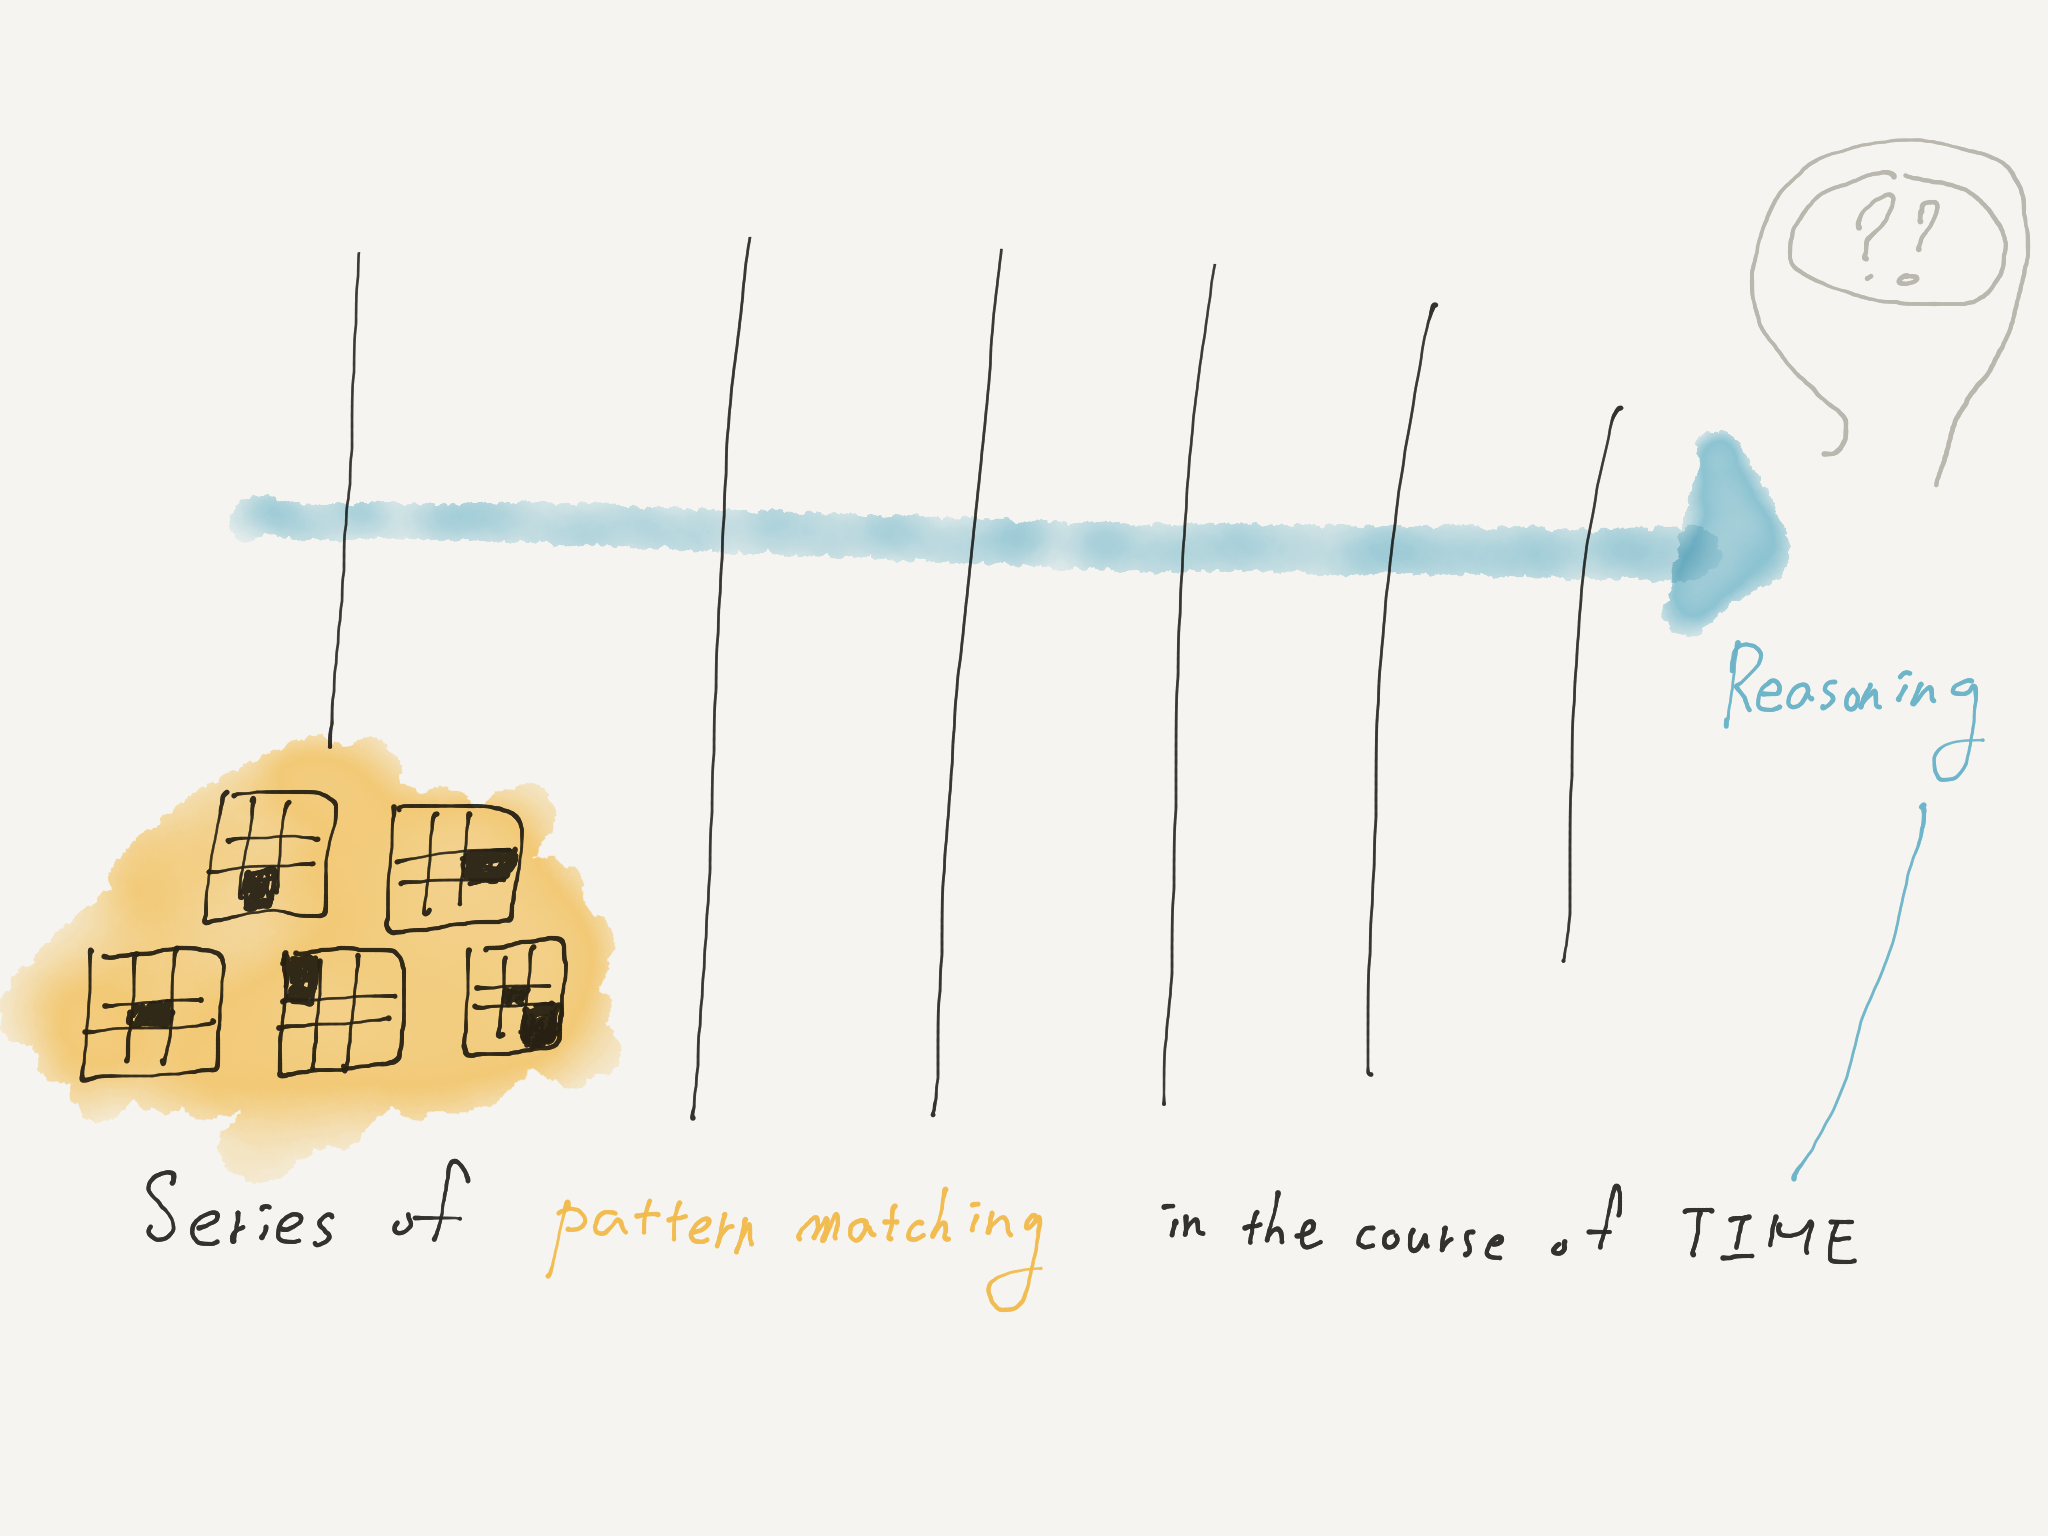 ??
Reasoning
Series of pattern matching in the course of TIME